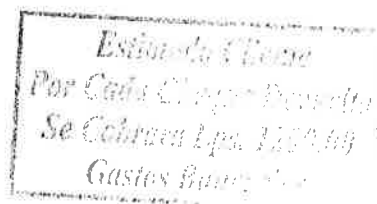 Estimado Cliente
Por Cada Cheque Devuelto
Se Cobrara Lps.
Gastos Bancarios